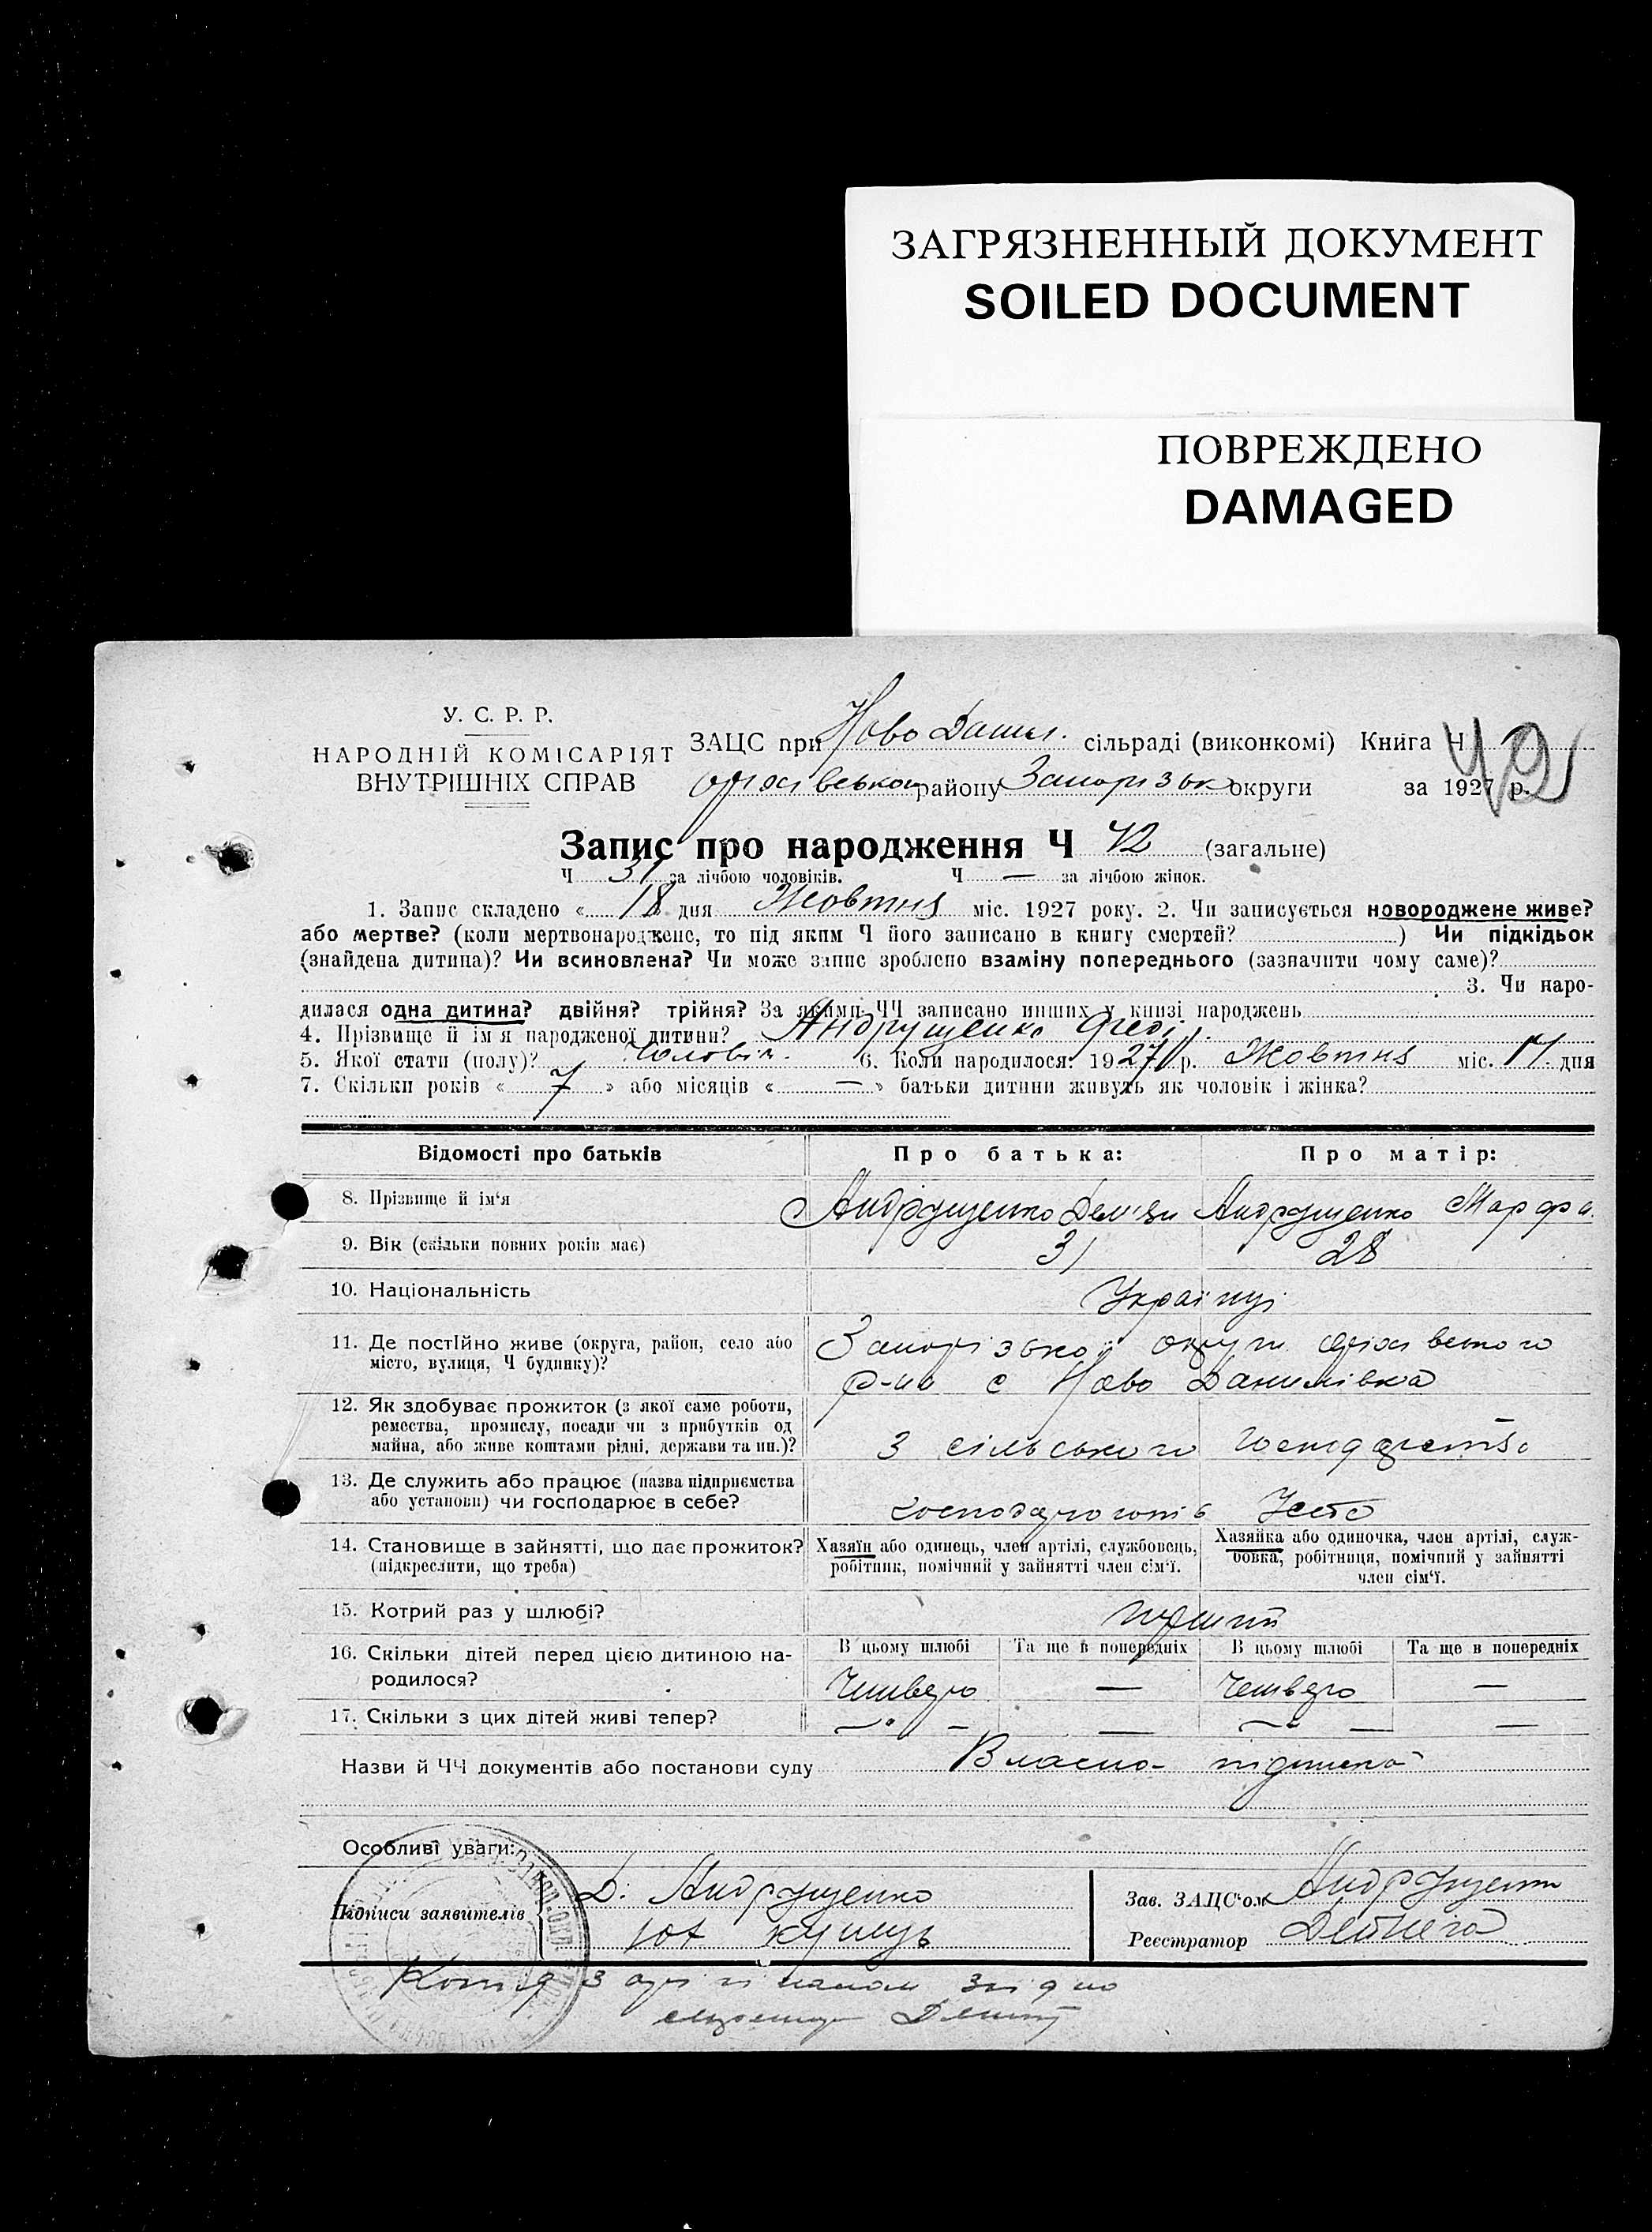 ЗАГРЯЗНЕННЫЙ ДОКУМЕНТ
SOILED DOCUMENT
ПОВРЕЖДЕНО
DAMAGED
У. С. Р. Р.
НАРОДНІЙ КОМІСАРІЯТ
ВНУТРІШНІХ СПРАВ
ЗАЦС при Ново Данил. сільраді (виконкомі) Книга Ч 42
району Запорізьк округи за 1927 р.
Запис про народження Ч 42 (загальне)
Ч 31 за лічбою чоловіків. Ч — за лічбою жінок.
1. Запис складено « 18 » дня Жовтня міс. 1927 року. 2. Чи записується новороджене живе?
або мертве? (коли мертвонароджене, то під яким Ч його записано в книгу смертей? ) Чи підкідьок
(знайдена дитина)? Чи всиновлена? Чи може запис зроблено взаміну попереднього (зазначити чому саме)?
3. Чи наро-
дилася одна дитина? двійня? трійня? За якими ЧЧ записано инших у книзі народжень
4. Прізвище й ім'я народженої дитини? Андрущенко Федір.
5. Якої стати (полу)? Чоловіч. 6. Коли народилося? 1927 р. Жовтня міс. 17 дня
7. Скільки років « 7 » або місяців « — » батьки дитини живуть як чоловік і жінка?
Відомості про батьків Про батька: Про матір:
8. Прізвище й ім'я Андрущенко Дем'ян Андрущенко Марфа.
9. Вік (скільки повних років має) 31 28
10. Національність Українці
11. Де постійно живе (округа, район, село або Запорізької округи Оріхівського
місто, вулиця, Ч будинку)? р-на с Ново Данилівка
12. Як здобуває прожиток (з якої саме роботи,
ремества, промислу, посади чи з прибутків од
майна, або живе коштами рідні, держави та ин.)? З сільського господарства
13. Де служить або працює (назва підприємства
або установи) чи господарює в себе? господарюють в себе
14. Становище в зайнятті, що дає прожиток? Хазяїн або одинець, член артілі, службовець, Хазяйка або одиночка, член артілі, служ-
(підкреслити, що треба) робітник, помічний у зайнятті член сім'ї. бовка, робітниця, помічний у зайнятті
член сім'ї.
15. Котрий раз у шлюбі? перший
16. Скільки дітей перед цією дитиною на- В цьому шлюбі Та ще в попередніх В цьому шлюбі Та ще в попередніх
родилося? Четверо — Четверо —
17. Скільки з цих дітей живі тепер? —"— — —"— —
Назви й ЧЧ документів або постанови суду Власна підписка
Особливі уваги:
Підписи заявителів Д. Андрущенко Зав. ЗАЦС'ом Андрущенко
Реєстратор Дейнега
Копія з оригіналом згідно
секретар